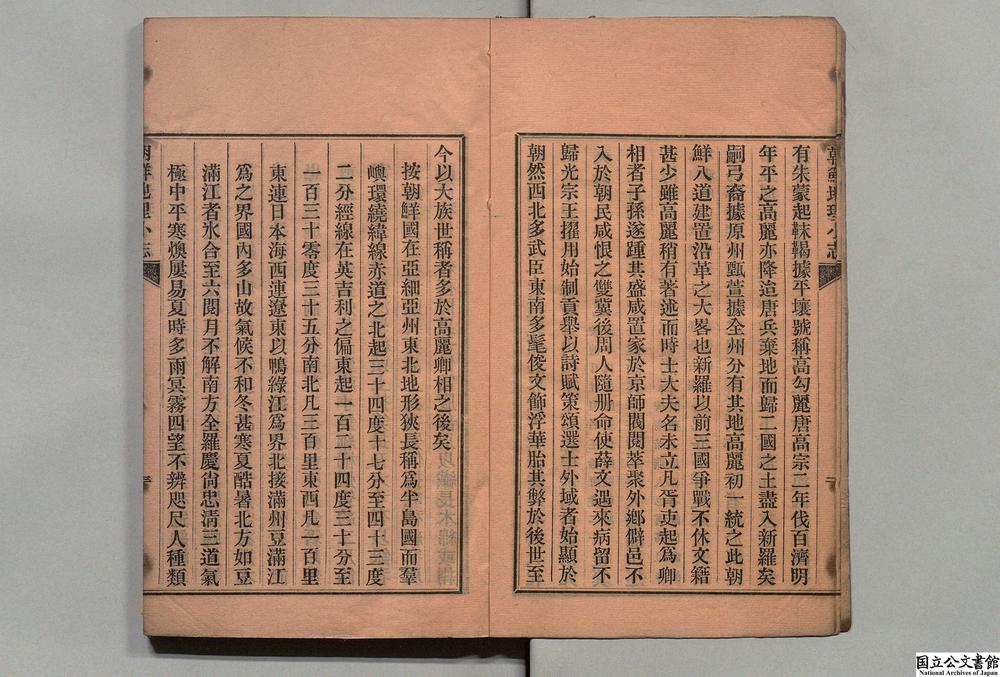 有朱蒙起靺鞨據平壤號稱高勾麗唐高宗二年伐百濟明
年平之高麗亦降迨唐兵棄地而歸二國之土盡入新羅矣
嗣弓裔據原州甄萱據全州分有其地高麗初一統之此朝
鮮八道建置沿革之大畧也新羅以前三國爭戰不休文籍
甚少雖高麗稍有著述而時士大夫名未立凡胥吏起爲卿
相者子孫遂踵其盛咸置家於京師閥閱萃聚外鄉僻邑不
入於朝民咸恨之雙冀後周人隨册命使薛文遇來病留不
歸光宗王擢用始制貢舉以詩賦策頌選士外域者始顯於
朝然西北多武臣東南多髦俊文飾浮華胎其弊於後世至
朝鮮地理小志
今以大族世稱者多於高麗卿相之後矣
按朝鮮國在亞細亞州東北地形狹長稱爲半島國而羣
嶼環繞緯線赤道之北起三十四度十七分至四十三度
二分經線在英吉利之偏東起一百二十四度三十分至
一百三十零度三十五分南北凡三百里東西凡一百里
東連日本海西連遼東以鴨綠江爲界北接滿州豆滿江
爲之界國內多山故氣候不和冬甚寒夏酷暑北方如豆
滿江者氷合至六閱月不解南方全羅慶尙忠淸三道氣
極中平寒燠屢易夏時多雨冥霧四望不辨咫尺人種類
朝鮮地理小志
国立公文書館
National Archives of Japan